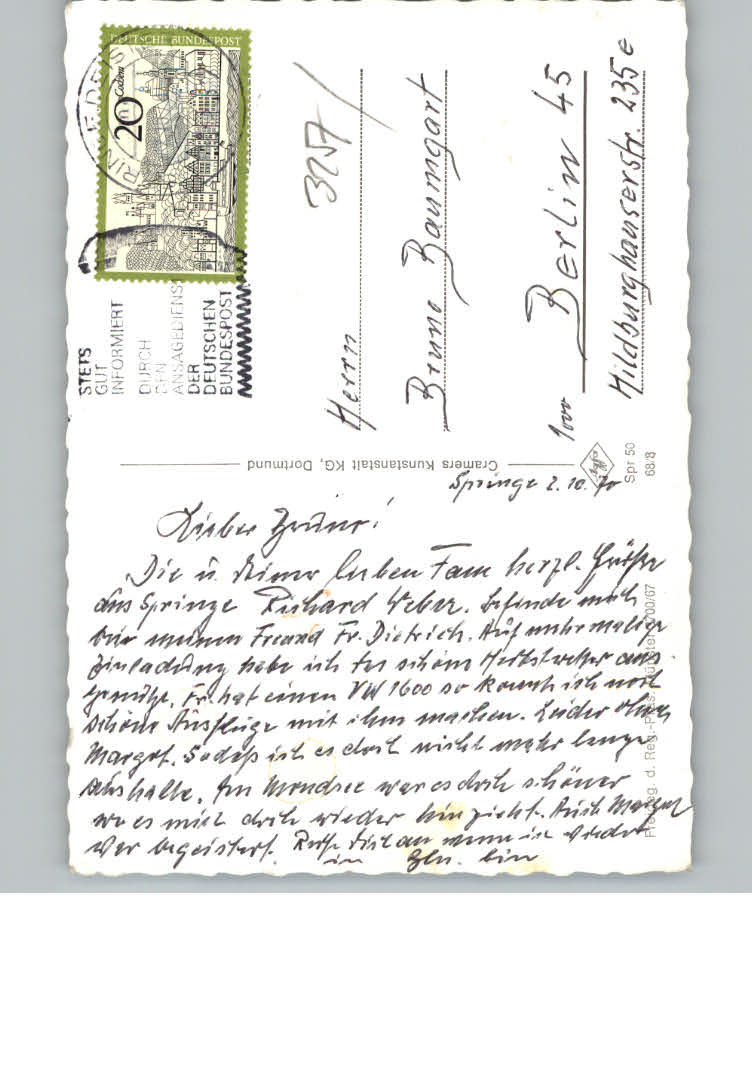 DEUTSCHE BUNDESPOST
20 Cochem
STETS
GUT
INFORMIERT
DURCH
DEN
ANSAGEDIENST
DER
DEUTSCHEN
BUNDESPOST
3257/
Herrn
Bruno Baumgart
1000 Berlin 45
Hildburghauserstr. 235e
Cramers Kunstanstalt KG, Dortmund
Spr 50
68/8
Springe 2.10.70
Lieber Bruno!
Dir u. Deiner lieben Fam herzl. Grüße
aus Springe Richard Weber. Befinde mich
bei meinem Freund Fr. Dietrich. Auf mehrmalige
Einladung habe ich das schöne Herbstwetter aus-
genutzt. Fr. hat einen VW 1600 so konnte ich noch
schöne Ausflüge mit ihm machen. Leider ohne
Margot. Sodaß ich es doch nicht mehr lange
aushalte. Am Mondsee war es doch schöner
wo es mich doch wieder hinzieht. Auch Margot
war begeistert. Rufe Dich an wenn ich wieder
in Bln. bin